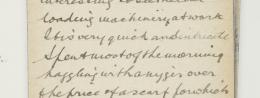 interesting to see them
loading machinery at work
It is very quick and intricate
Spent most of the morning
haggling with a nyger over
the price of a scarf for which